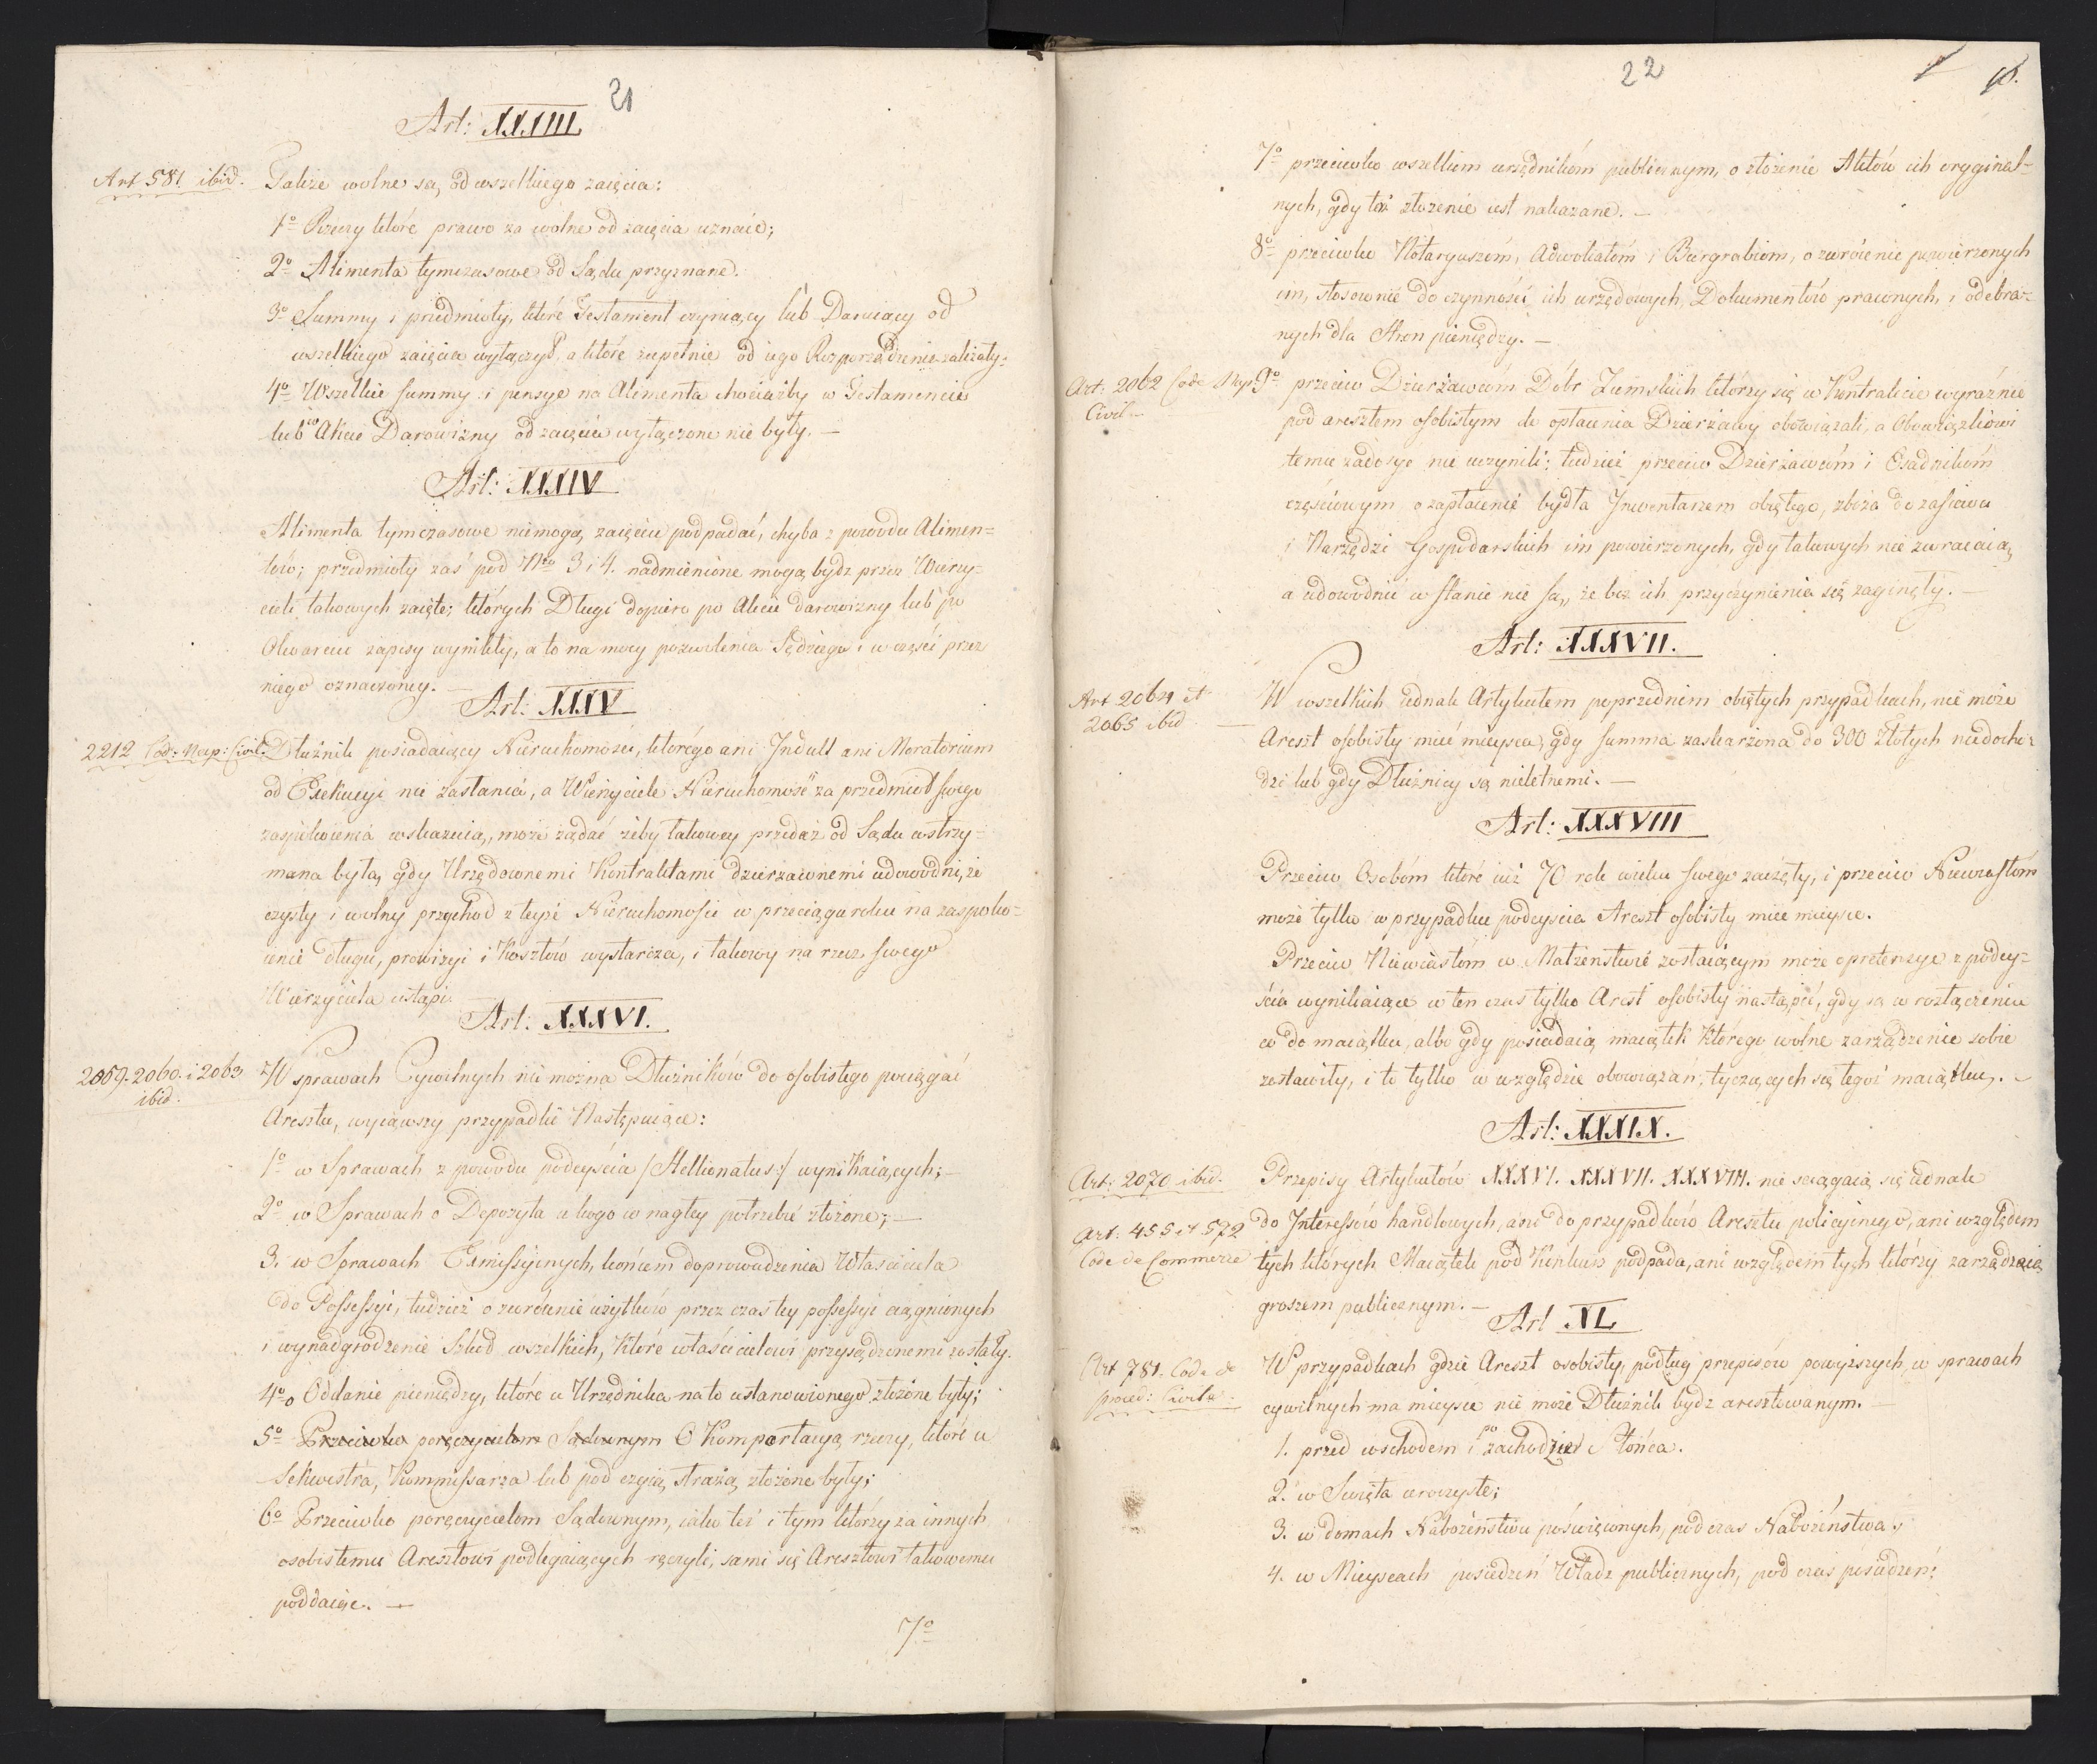 21
Art: XXXIII
Art 581. ibid.
Także wolne są od wszelkiego zaięcia:
1º Rzeczy które prawo za wolne od zaięcia uznaie;
2º Alimenta tymczasowe od Sądu przyznane.
3º Summy i przedmioty, które Testament czyniący lub Daruiący od
wszelkiego zaięcia wyłączył, a które zupełnie od iego Rozporządzenia zależały.
4º Wszelkie summy i pensye na Alimenta chociażby w Testamencie
lub w Akcie Darowizny od zaięcia wyłączone nie były. —
Art: XXXIV
Alimenta tymczasowe niemogą zaięciu podpadać, chyba z powodu Alimen=
tów; przedmioty zaś pod Nro 3 i 4. nadmienione mogą bydz przez Wierzy=
cieli takowych zaięte; których Długi dopiero po Akcie darowizny lub po
Otwarciu zapisy wynikły, a to na mocy pozwolenia Sędziego i w części przez
niego oznaczoney. —
Art: XXXV
2212 Cod: Nap: Civil.
Dłużnik posiadaiący Nieruchomości, którego ani Indult ani Moratorium
od Exekucyi nie zasłania, a Wierzyciele Nieruchomość za przedmiot swego
zaspokoienia wskazuią, może żądać żeby takowey przedaż od Sądu wstrzy=
mana była, gdy Urzędownemi Kontraktami dzierzawnemi udowodni, że
czysty i wolny przychod z teyże Nieruchomości w przeciągu roku na zaspoko=
ienie długu, prowizyi i Kosztów wystarcza, i takowy na rzecz swego
Wierzyciela ustąpi.
Art: XXXVI.
2059. 2060. i 2063
ibid.
W sprawach Cywilnych nie można Dłużników do osobistego pociągać
Aresztu, wyiąwszy przypadki Następuiące:
1º w Sprawach z powodu podeyścia /:Stellionatus:/ wynikaiących; —
2º w Sprawach o Depozyta u kogo w nagłey potrzebie złożone; —
3. w Sprawach Exmissyinych, końcem doprowadzenia Właściciela
do Possessyi, tudzież o zwrócenie użytków przez czas tey possessyi ciągnionych
i wynadgrodzenie Szkod wszelkich, które właścicielowi przysądzonemi zostały.
4º o Oddanie pieniędzy, które u Urzędnika na to ustanowionego złożone były;
5º Przeciwko poręczycielom Sądownym O Komportacyą rzeczy, które u
Sekwestra, Kommissarza lub pod czyią strażą złożone były;
6º Przeciwko poręczycielom Sądownym, iako też i tym którzy za innych
osobistemu Aresztowi podlegaiących ręczyli, sami się Aresztowi takowemu
poddaiąc. —
7º
22
7º przeciwko wszelkim urzędnikóm publicznym, o złożenie Aktów ich orygínal=
nych, gdy toż złożenie iest nakazane. —
8º przeciwko Notaryuszóm, Adwokatóm i Burgrabióm, o zwrócenie powierzonych
im, stosownie do czynności ich urzędowych, Dokumentów prawnych, i odebra=
nych dla Stron pieniędzy. —
Art: 2062 Code Nap:
Civil —
9º przeciw Dzierżawcóm Dóbr Ziemskich którzy się w Kontrakcie wyraźnie
pod aresztem osobistym do opłacenia Dzierżawy obowiązali, a Obowiązkowi
temu zadosyć nie uczynili; tudzież przeciw Dzierżawcóm i Osadnikóm
częściowym o zapłacenie bydła Inwentarzem obiętego, zboża do zasiewu
i Narzędzi Gospodarskich im powierzonych, gdy takowych nie zwracaią,
a udowodnić w stanie nie są, że bez ich przyczynienia się zaginęły. —
Art: XXXVII.
Art 2064 et
2065 ibid
W wszelkich iednak Artykułem poprzednim obiętych przypadkach, nie może
Areszt osobisty mieć mieysca, gdy summa zaskarżona do 300 Złotych niedocho=
dzi lub gdy Dłużnicy są nieletnemi. —
Art: XXXVIII
Przeciw Osobóm które iuż 70 rok wieku swego zaczęły, i przeciw Niewiastóm
może tylko w przypadku podeyścia Areszt osobisty mieć mieysce.
Przeciw Niewiastóm w Małżeństwie zostaiącym może o pretensye z podey=
ścia wynikaiące w ten czas tylko Areszt osobisty nastąpić, gdy są w rozłączeniu
co do maiątku, albo gdy posiadaią maiątek którego wolne zarządzenie sobie
zostawiły, i to tylko w względzie obowiązań, tyczących się tegoż maiątku. —
Art: XXXIX.
Art: 2070 ibid.
Art: 455 et 572
Code de Commerce
Przepisy Artykułów XXXVI. XXXVII. XXXVIII. nie sciągaią się iednak
do Interessów handlowych, ani do przypadków Aresztu policyinego, ani względem
tych których Maiątek pod Konkurs podpada, ani względem tych którzy zarządzaią
groszem publicznym. —
Art XL
Art 781. Code de
proced: Civile.
W przypadkach gdzie Areszt osobisty, podług przepisów powyższych, w sprawach
cywilnych ma mieysce nie może Dłużnik bydz aresztowanym. —
1. przed wschodem i po zachodzie Słońca.
2. w Święta uroczyste;
3. w domach Nabożeństwu poświęconych, pod czas Nabożeństwa,
4. w Mieyscach posiedzeń Władz publicznych, pod czas posiedzeń;